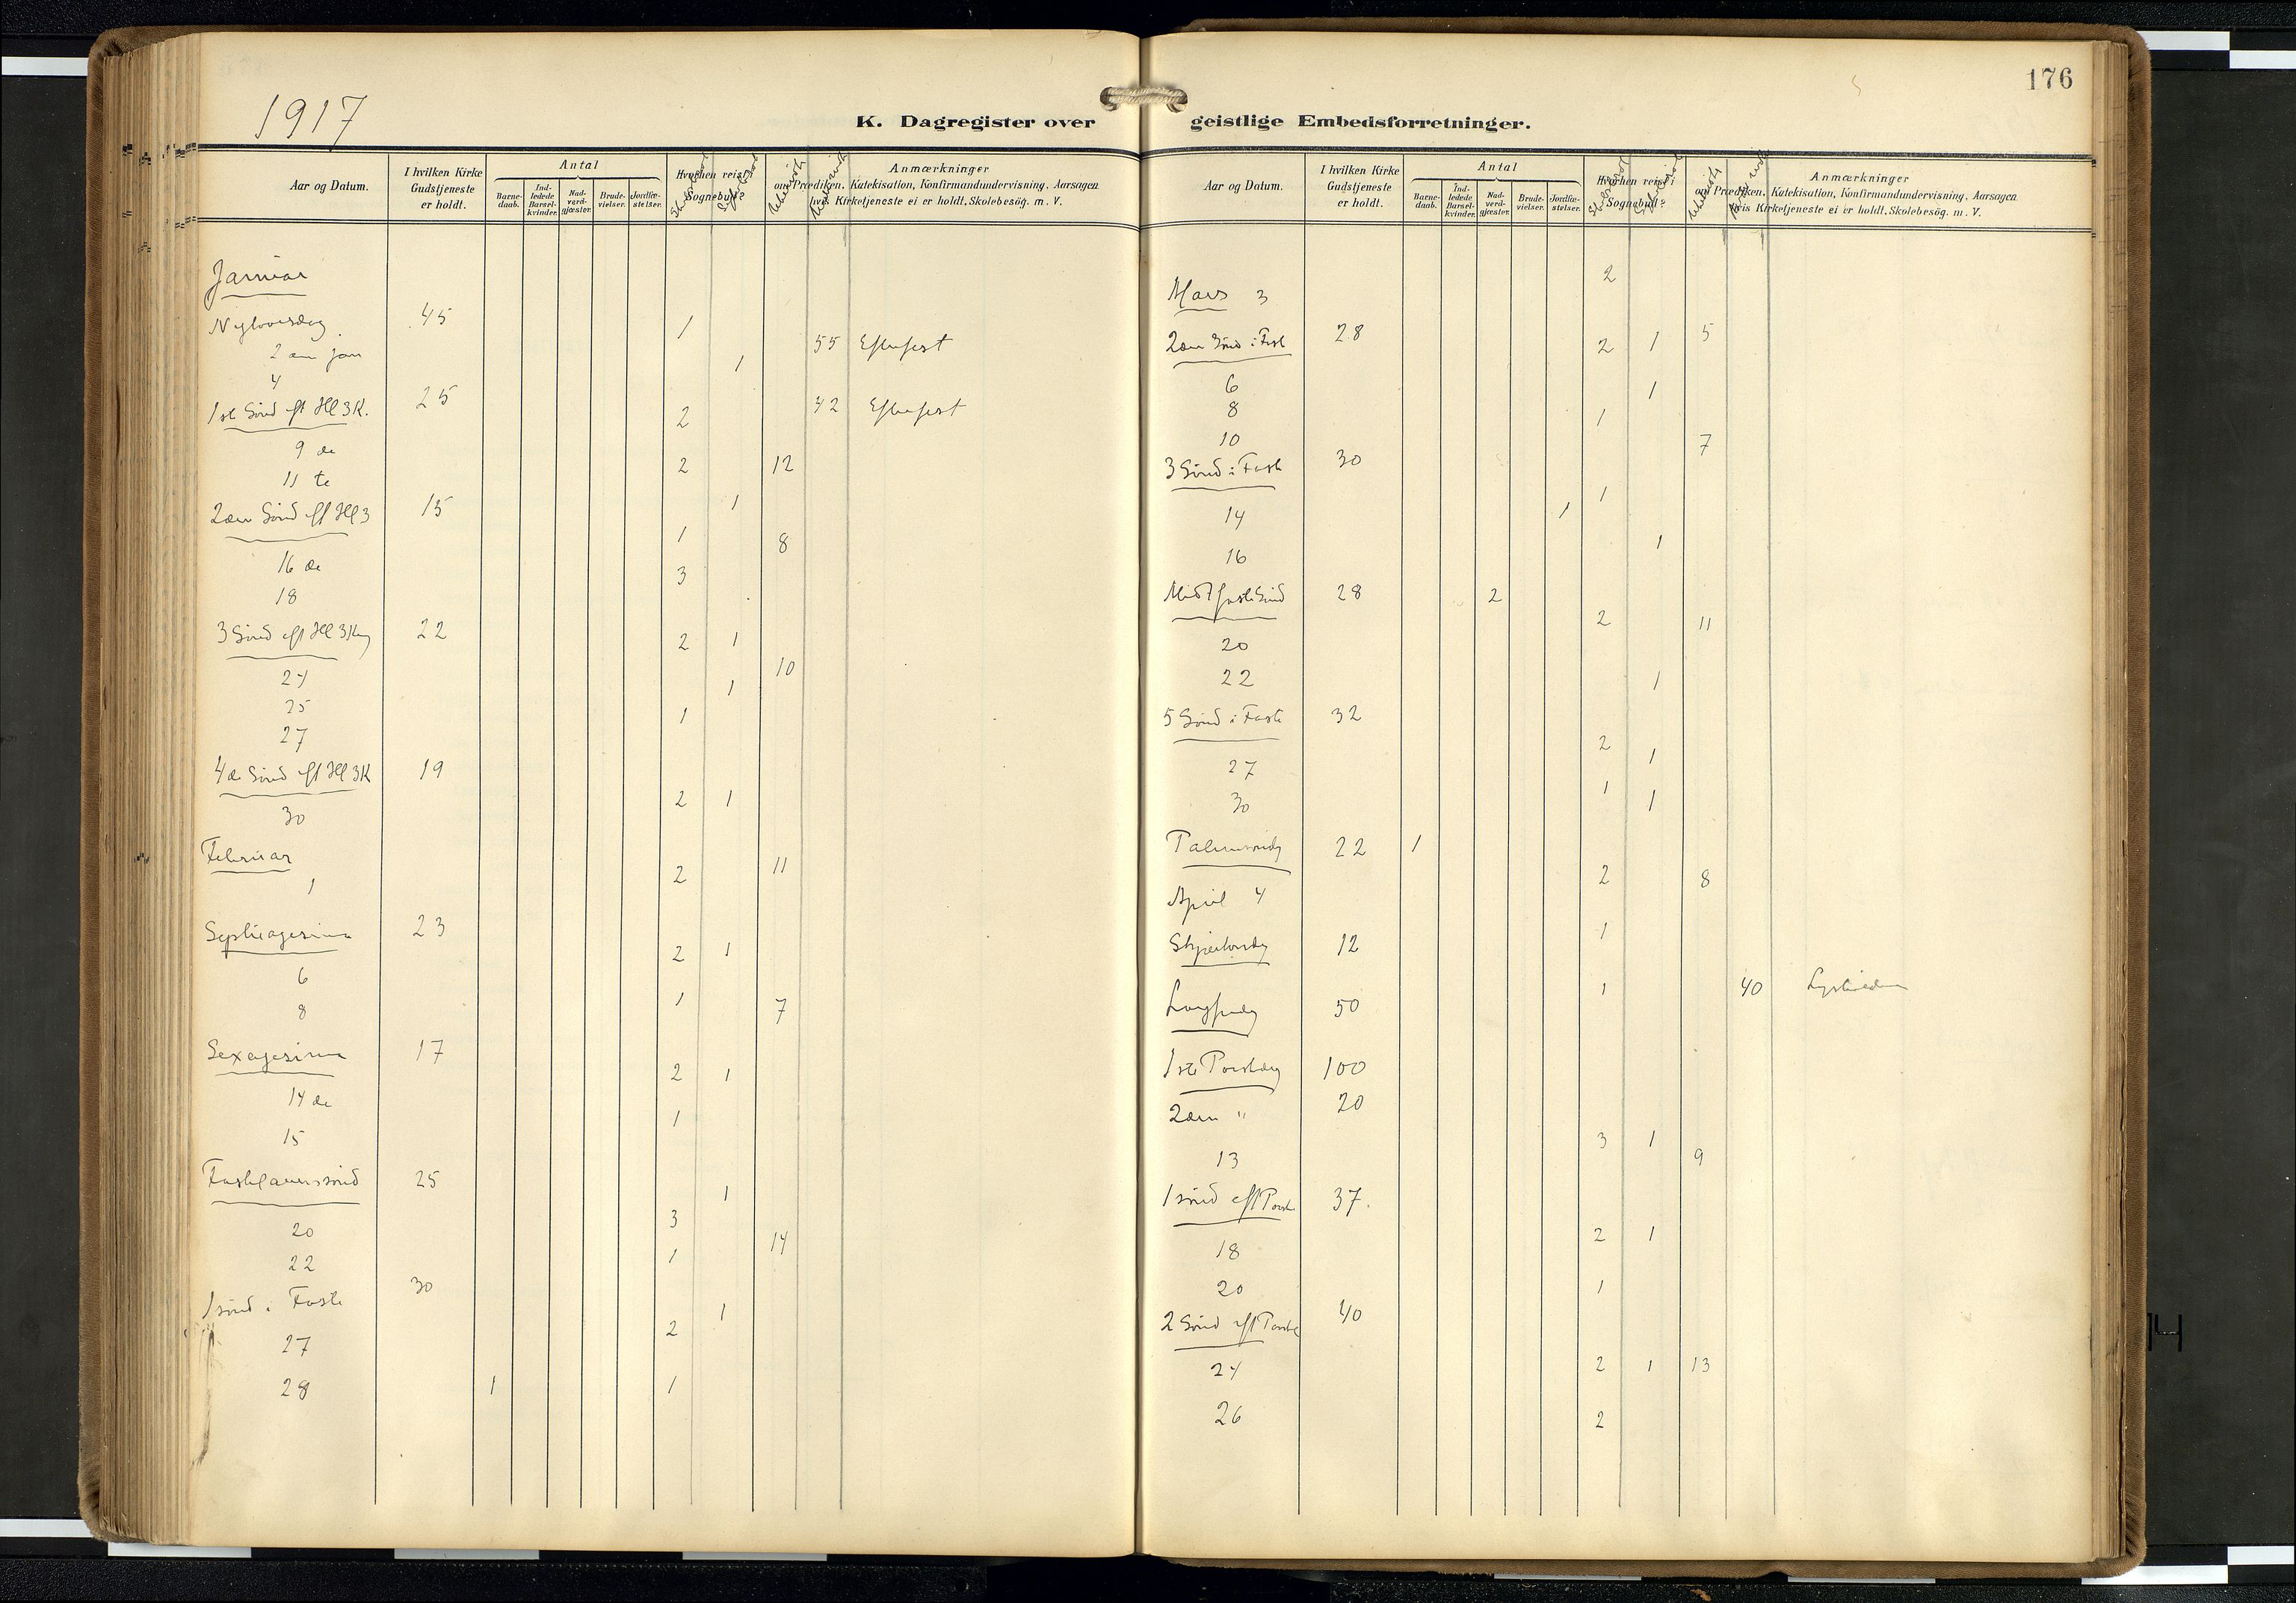 1917
K. Dagregister over
Aar og Datum.
I hvilken Kirke Gudstjeneste er holdt.
Antal
Barne-daab.
Ind-ledede Barsel-kvinder.
Nad-verd-gjæster.
Brude-vielser.
Jordfæ-stelser.
Hvorhen reist i Sognebud?
Anmærkninger
om Prædiken, Katekisation, Konfirmandundervisning, Aarsagen
hvis Kirketjeneste ei er holdt, Skolebesög. m. V.
Januar
Nytaarsdag 45 1
2 den Jan 55
4 1
1ste Sønd eft Hl 3 K. 25 2 42
9 de 2 12
11 te 1
2den Sønd eft Hl 3 15 1 8
16 de 3
18
3 Sønd eft Hl 3 Kg 22 2 1
24 10
25 1
27 1
4de Sønd eft Hl 3 K 19 2 1
30
Februar 11
1 2
Septuagesima 23 2 1
6 1
8 7
Sexagesima 17 2 1
14 de 1
15
Fastelavenssønd 25 1
20 3 14
22 1
1 sønd i Faste 30 1
27 2
28 1 1
176
geistlige Embedsforretninger.
Aar og Datum.
I hvilken Kirke Gudstjeneste er holdt.
Antal
Barne-daab.
Ind-ledede Barsel-kvinder.
Nad-verd-gjæster.
Brude-vielser.
Jordfæ-stelser.
Hvorhen reist i Sognebud?
Anmærkninger
om Prædiken, Katekisation, Konfirmandundervisning, Aarsagen
hvis Kirketjeneste ei er holdt, Skolebesög. m. V.
Mars 3 2
2den Sønd i Fast 28 2 1 5
6 1
8 1
10 7
3 Sønd i Faste 30 1
14 1
16 1
Midtfaste Sønd 28 2
20 2 11
22 1
5 Sønd i Faste 32 2
27 1
30 1 1
Palmesøndg 22 1
April 4 2 8
Skjærtorsdg 12 1
Langfredg 50 1 40
1ste Paaskedag 100
2den " 20
13 3 1 9
1 sønd eft Paaske 37.
18 2 1
20 1
2 Sønd eft Paaske 40
24 2 1 13
26 2